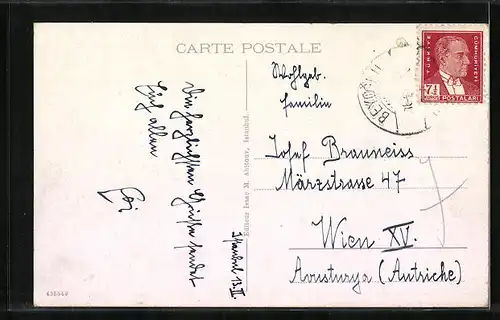 CARTE POSTALE
Die herzlichsten Grüsse sendet
Euch allen
Istanbul 13.II.
Editeur Isaac M. Ahitouv, Istanbul.
Wohlgeb.
Familie
Josef Brauneiss
Märzstrasse 47
Wien XV.
Avusturya (Autriche)
BEYOĞLU
TÜRKİYE
CUMHURİYETİ
7½
POSTALARI